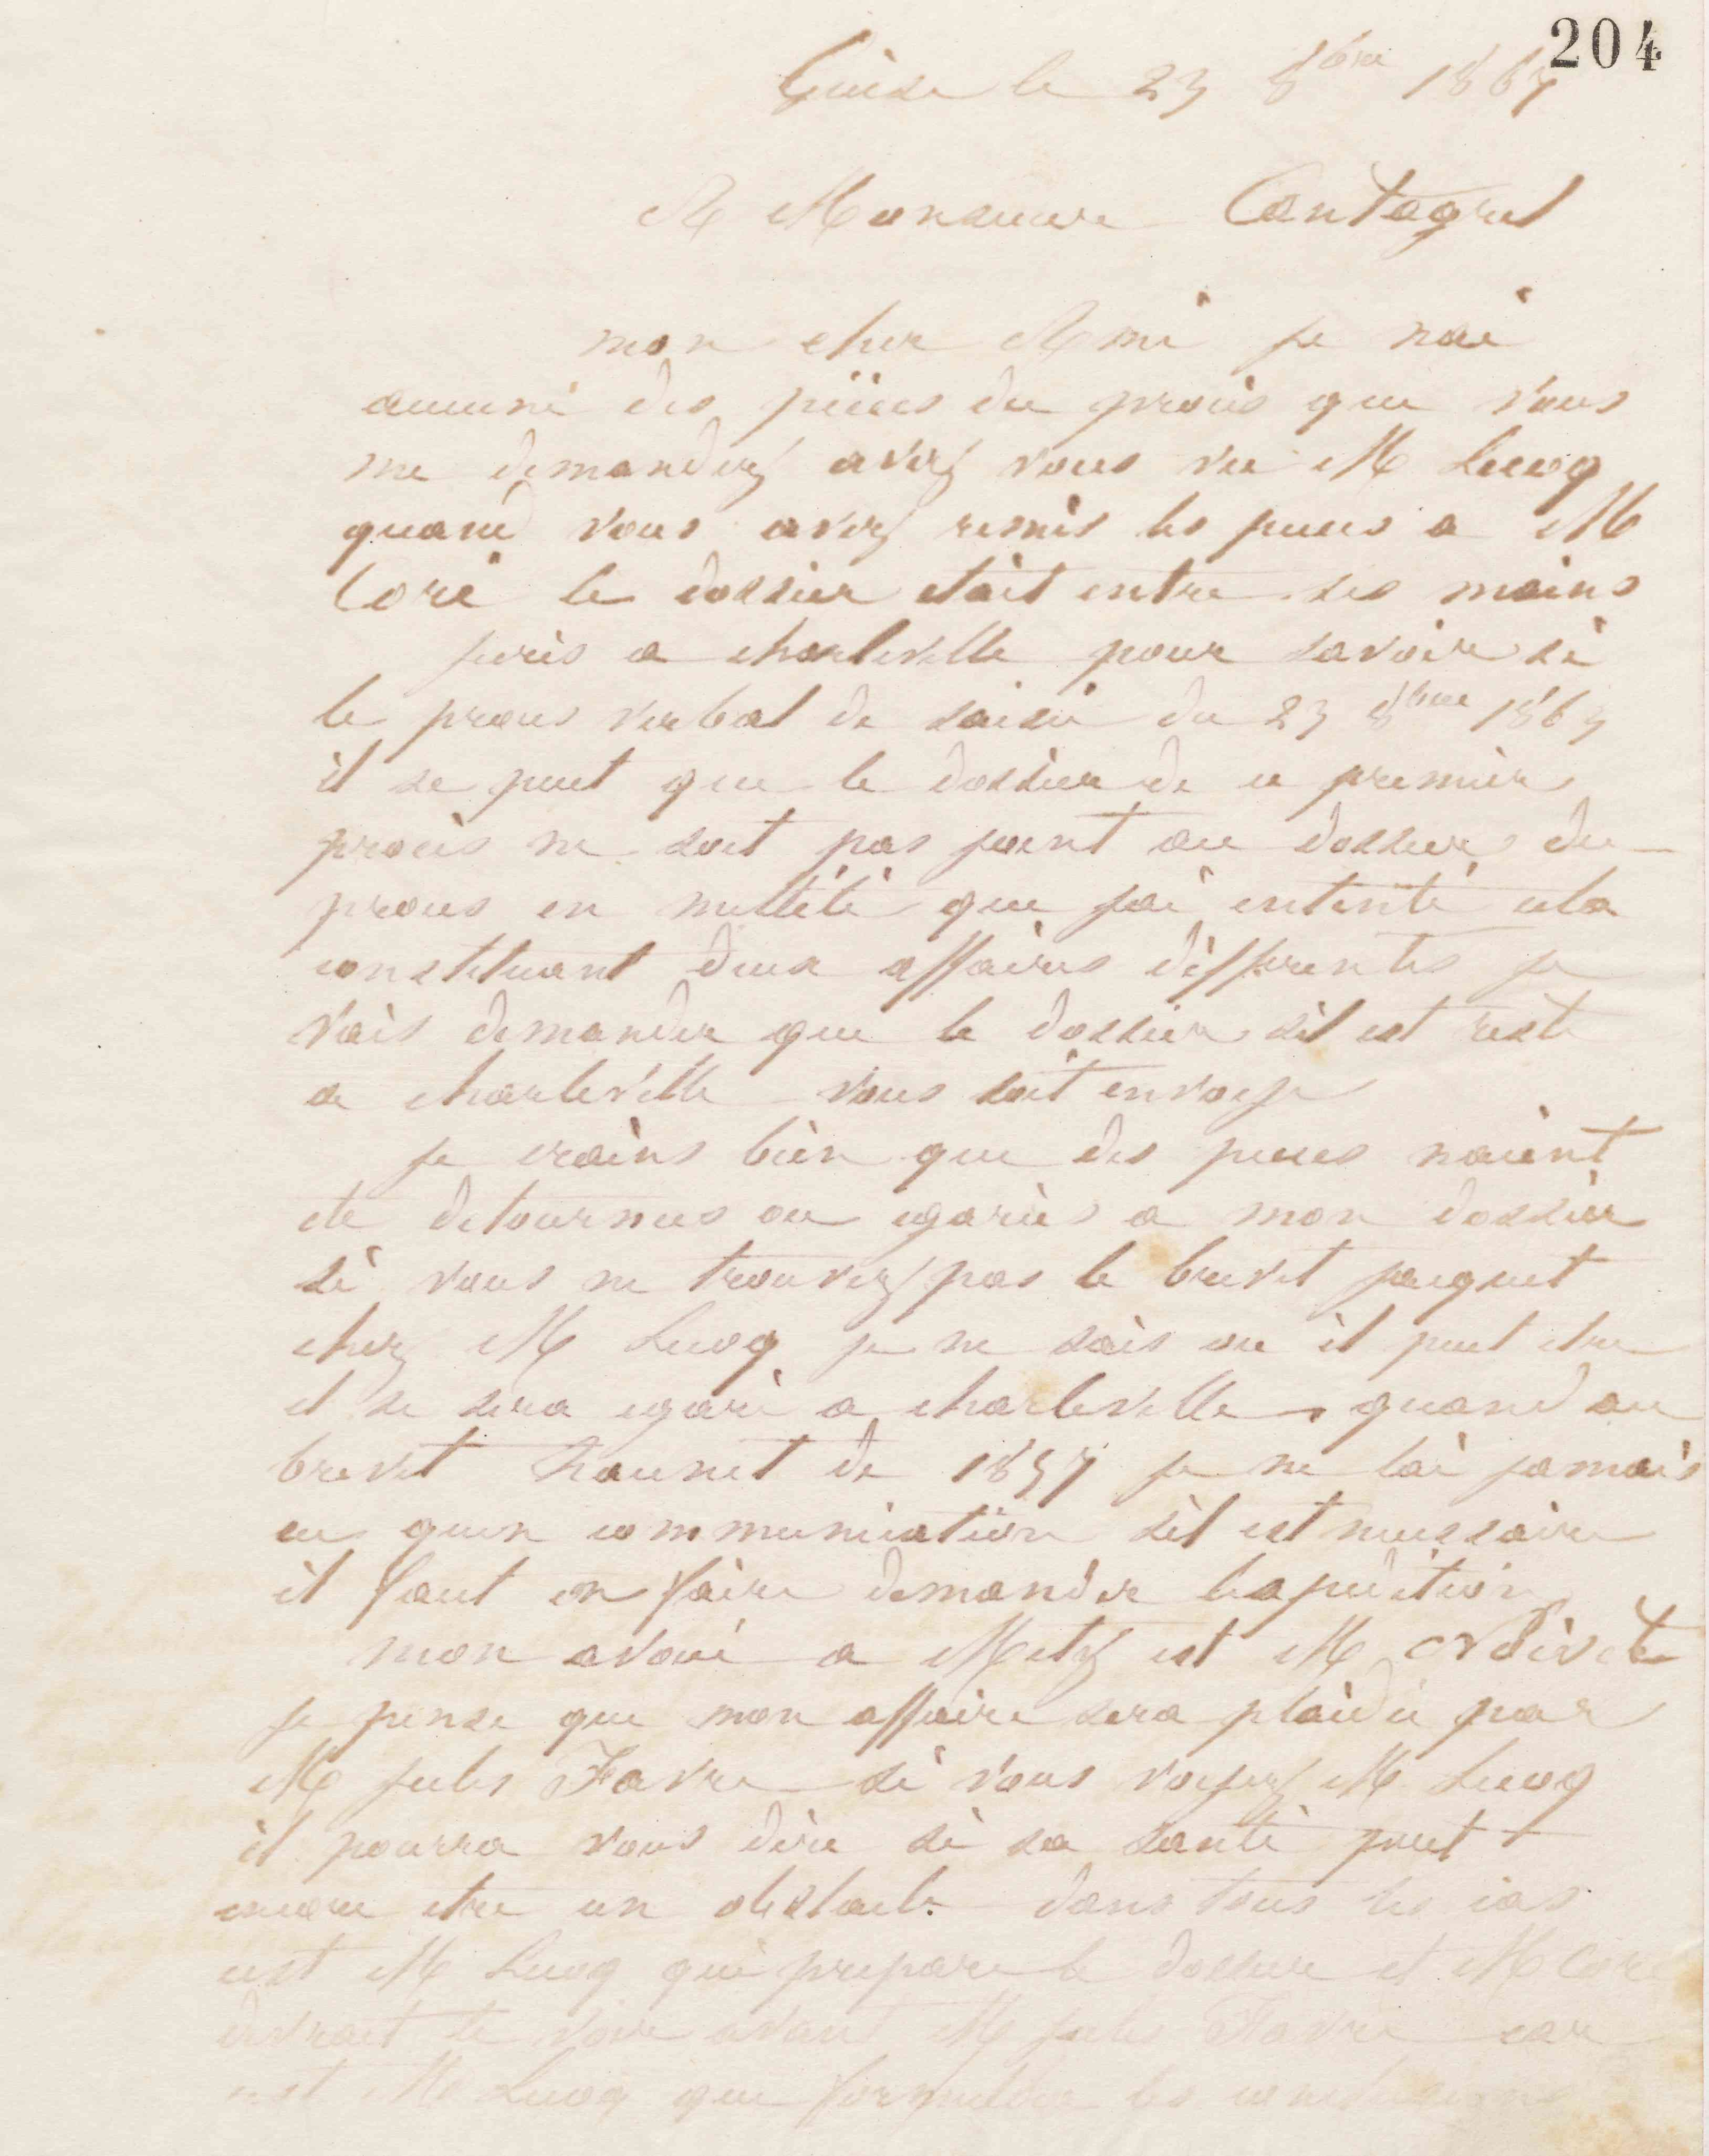 204
Guise le 23 8bre 1867
A Monsieur Cantagrel
mon cher Ami je nai
aucune des pièces du procès que vous
me demandez avez vous vu M Lecoq
quand vous avez remis les pieces a M
Coré le dossier était entre ses mains
jecris a charleville pour savoir si
le proces verbal de saisie du 23 8bre 1863
il se peut que le dossier de ce premier
procès ne soit pas joint au dossier du
proces en nullité que jai intenté cela
constituant deux affaires differentes je
vais demander que le dossier sil est resté
a charleville vous soit envoyé
je crains bien que des pieces naient
ete detournees ou egarées a mon dossier
si vous ne trouvez pas le brevet paquet
chez M Lecoq je ne sais ou il peut etre
il se sera egaré a charleville, quand au
brevet de 1857 je ne lai jamais
eu quen communication sil est necessaire
il faut en faire demander lexpedition
mon avoué a Metz est M Noizet
je pense que mon affaire sera plaidée par
M jules Favre si vous voyez M Lecoq
il pourra vous dire si sa santé peut
encore etre un obstacle. dans tous les cas
cest M Lecoq qui prepare le dossier et M Coré
devrait le voir avant M jules Favre car
cest M Lecoq qui formulera les conclusions